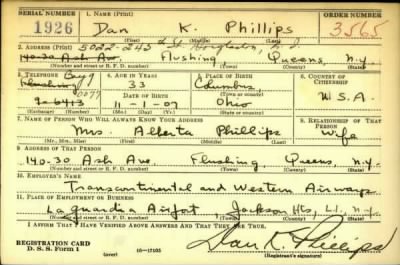 SERIAL NUMBER 1. NAME (Print) ORDER NUMBER
1926 Dan K. Phillips 3565
(First) (Middle) (Last)
2. ADDRESS (Print) 5022-243 rd St. Douglaston, L.I.
140-30 Ash Ave. Flushing, Queens, N.Y.
(Number and street or R. F. D. number) (Town) (County) (State)
3. TELEPHONE 4. AGE IN YEARS 5. PLACE OF BIRTH 6. COUNTRY OF CITIZENSHIP
Bay 9
Flushing 33 Columbus,
0079 DATE OF BIRTH (Town or county)
9-6413 11-1-07 Ohio U.S.A.
(Exchange) (Number) (Mo.) (Day) (Yr.) (State or country)
7. NAME OF PERSON WHO WILL ALWAYS KNOW YOUR ADDRESS 8. RELATIONSHIP OF THAT PERSON
Mrs. Alberta Phillips Wife
(Mr., Mrs., Miss) (First) (Middle) (Last)
9. ADDRESS OF THAT PERSON
140-30 Ash Ave. Flushing Queens, N.Y.
(Number and street or R. F. D. number) (Town) (County) (State)
10. EMPLOYER'S NAME
Transcontinental and Western Airways
11. PLACE OF EMPLOYMENT OR BUSINESS
La guardia Airport, Jackson Hts, L.I., N.Y.
(Number and street or R. F. D. number) (Town) (County) (State)
I AFFIRM THAT I HAVE VERIFIED ABOVE ANSWERS AND THAT THEY ARE TRUE.
REGISTRATION CARD
D. S. S. Form 1 (over) 16—17105 Dan K. Phillips
(Registrant's signature)